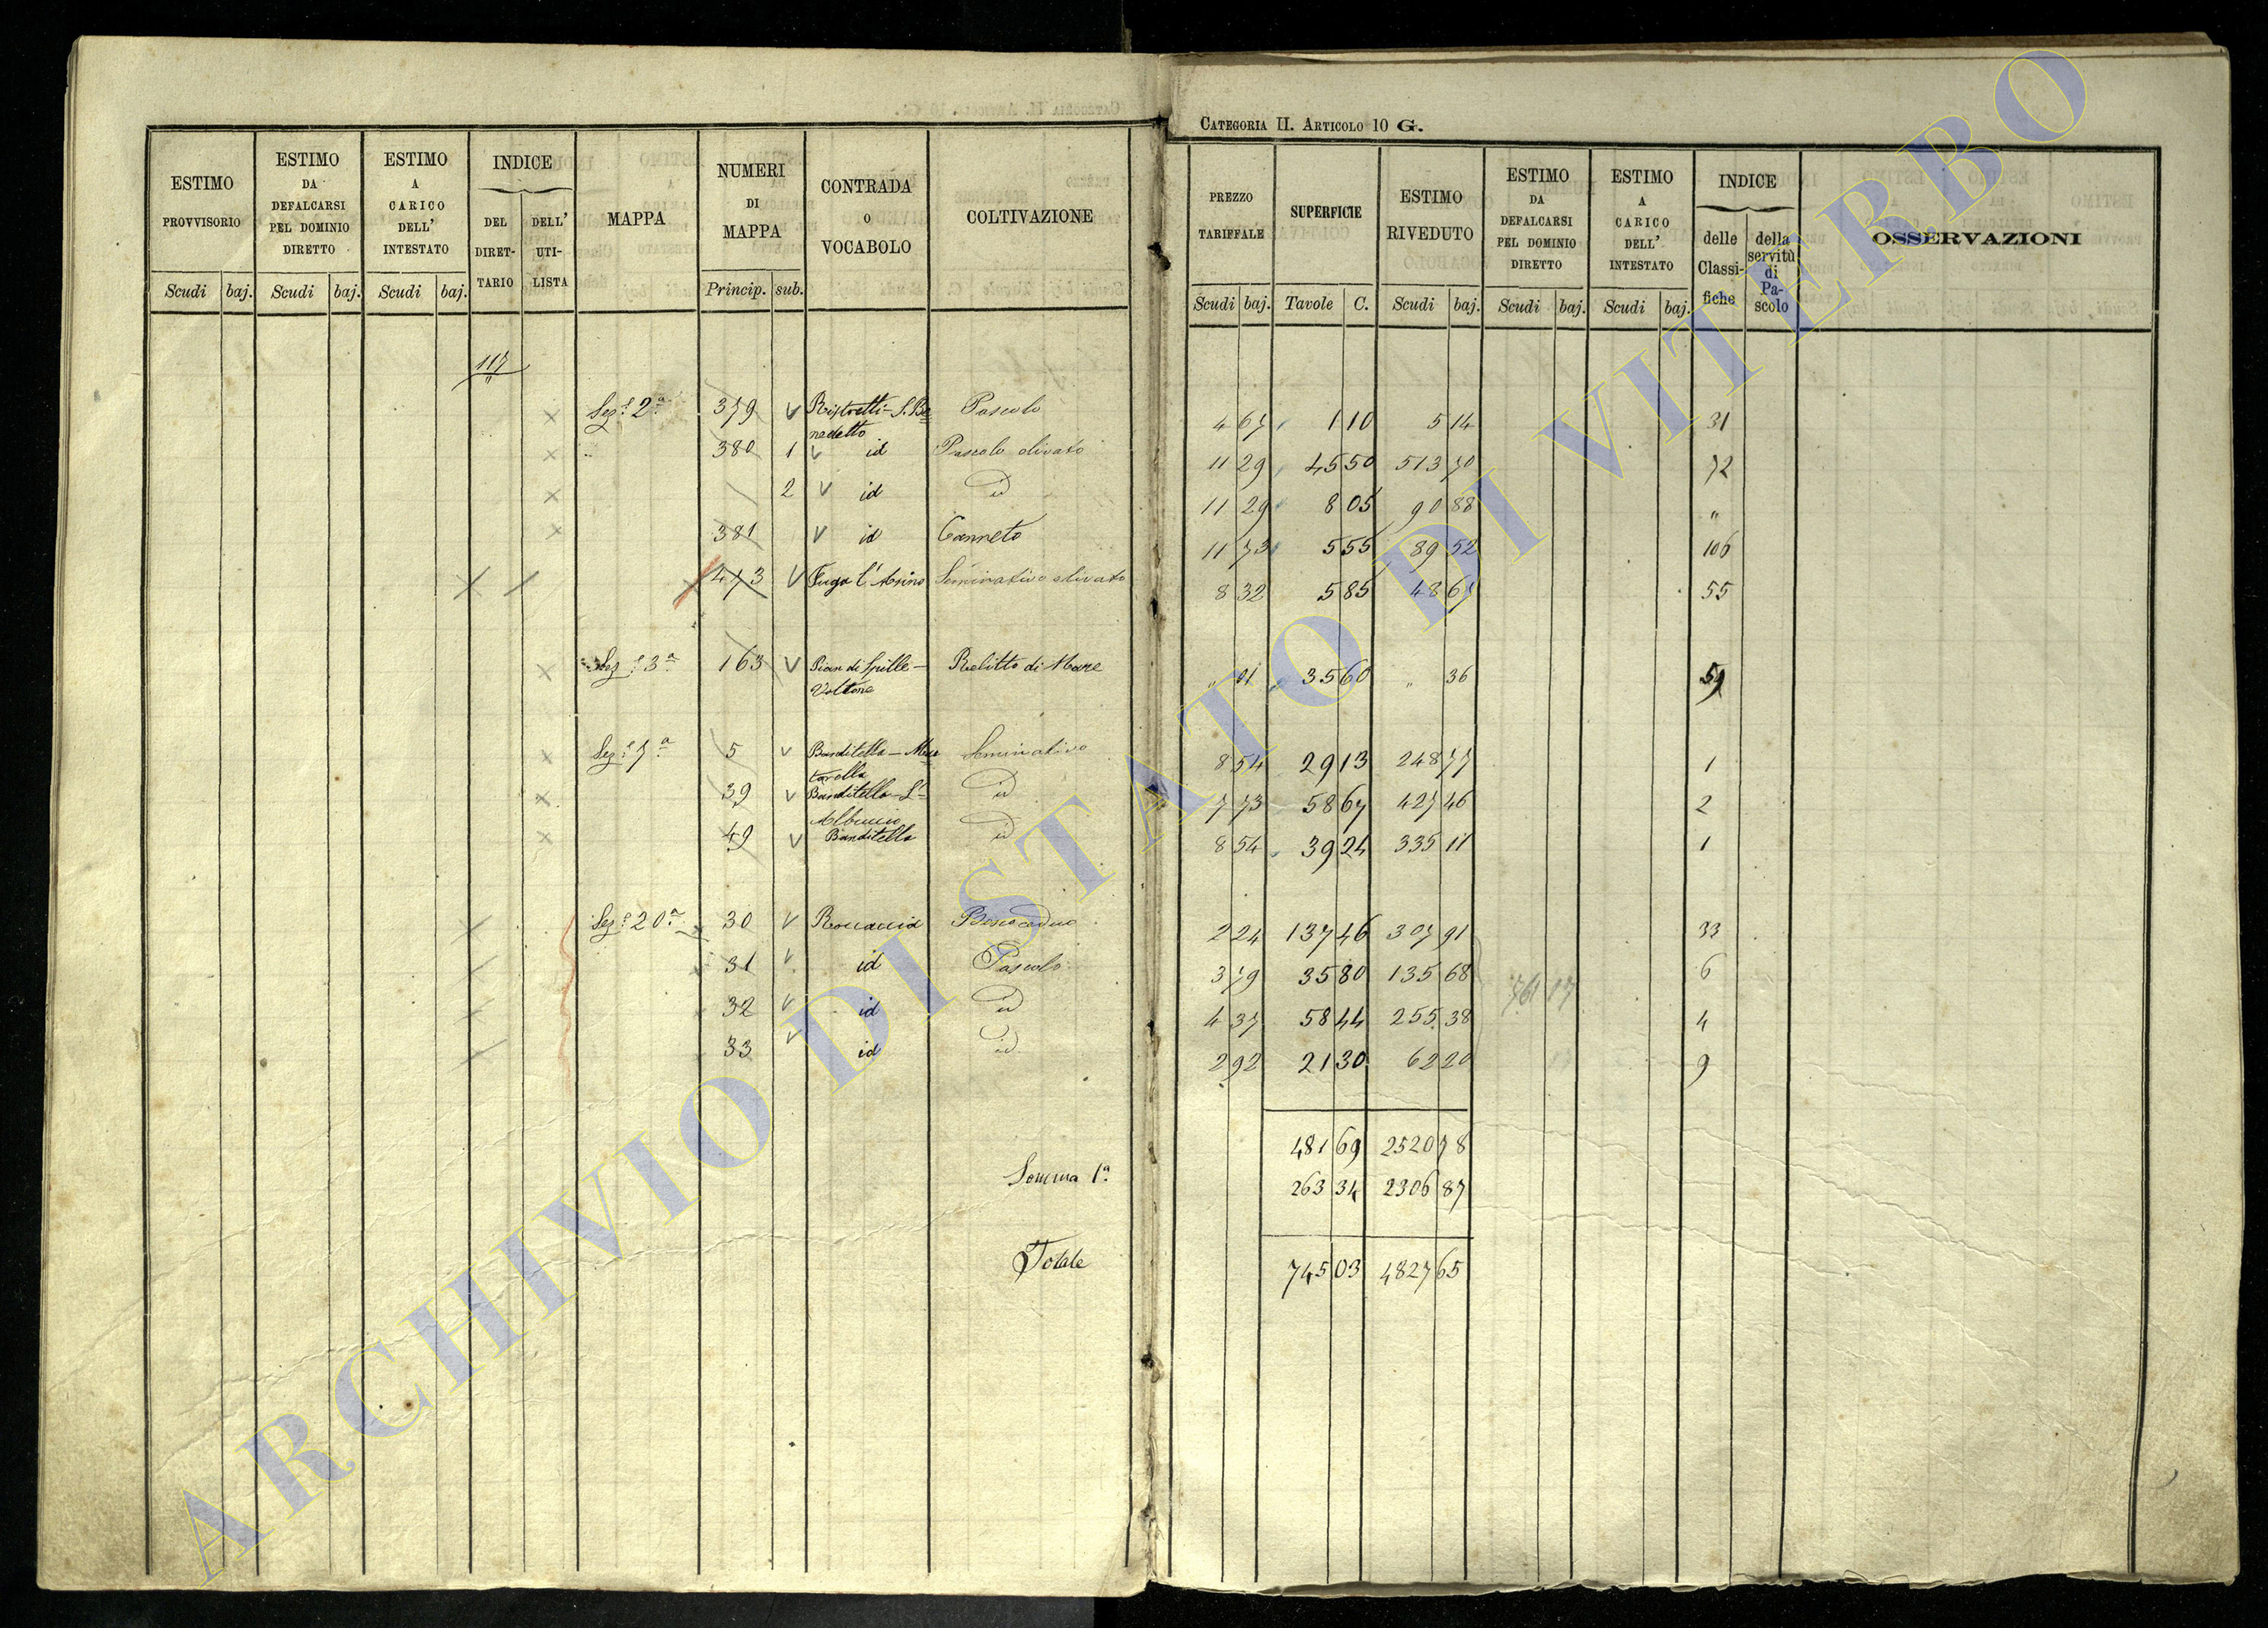 CATEGORIA II. ARTICOLO 10 G.
ESTIMO PROVVISORIO Scudi baj.
ESTIMO DA DEFALCARSI PEL DOMINIO DIRETTO Scudi baj.
ESTIMO A CARICO DELL' INTESTATO Scudi baj.
INDICE DEL DIRETTARIO DELL' UTILISTA
MAPPA
NUMERI DI MAPPA Princip. sub.
CONTRADA O VOCABOLO
COLTIVAZIONE
PREZZO TARIFFALE Scudi baj.
SUPERFICIE Tavole C.
ESTIMO RIVEDUTO Scudi baj.
ESTIMO DA DEFALCARSI PEL DOMINIO DIRETTO Scudi baj.
ESTIMO A CARICO DELL' INTESTATO Scudi baj.
INDICE delle Classifiche della servitù di Pascolo
OSSERVAZIONI
117
Sez.e 2a 379 Ristretti - S. Benedetto Pascolo 4 67 1 10 5 14 31
" 380 1 id Pascolo olivato 11 29 45 50 513 70 72
2 id id 11 29 8 05 90 88 "
381 id Canneto 11 73 5 55 89 52 106
473 Fuga l'Asino Seminativo olivato 8 32 5 85 48 67 55
Sez.e 3a 163 Pian di Spille - Voltone Relitto di Mare " 01 35 60 " 36 59
Sez.e 7a 5 Banditella - Mucatarella Seminativo 8 54 29 13 248 77 1
39 Banditella S. Albuccio id 7 73 58 67 427 46 2
49 Banditella id 8 54 39 24 335 11 1
Sez.e 20a 30 Roccaccia Bosco ceduo 2 24 137 46 307 91 33
31 id Pascolo 3 79 35 80 135 68 6
32 id id 4 37 58 44 255 38 4
761 17
33 id id 2 92 21 30 62 20 9
481 69 2520 78
Somma 1a 263 34 2306 87
Totale 745 03 4827 65
ARCHIVIO DI STATO DI VITERBO